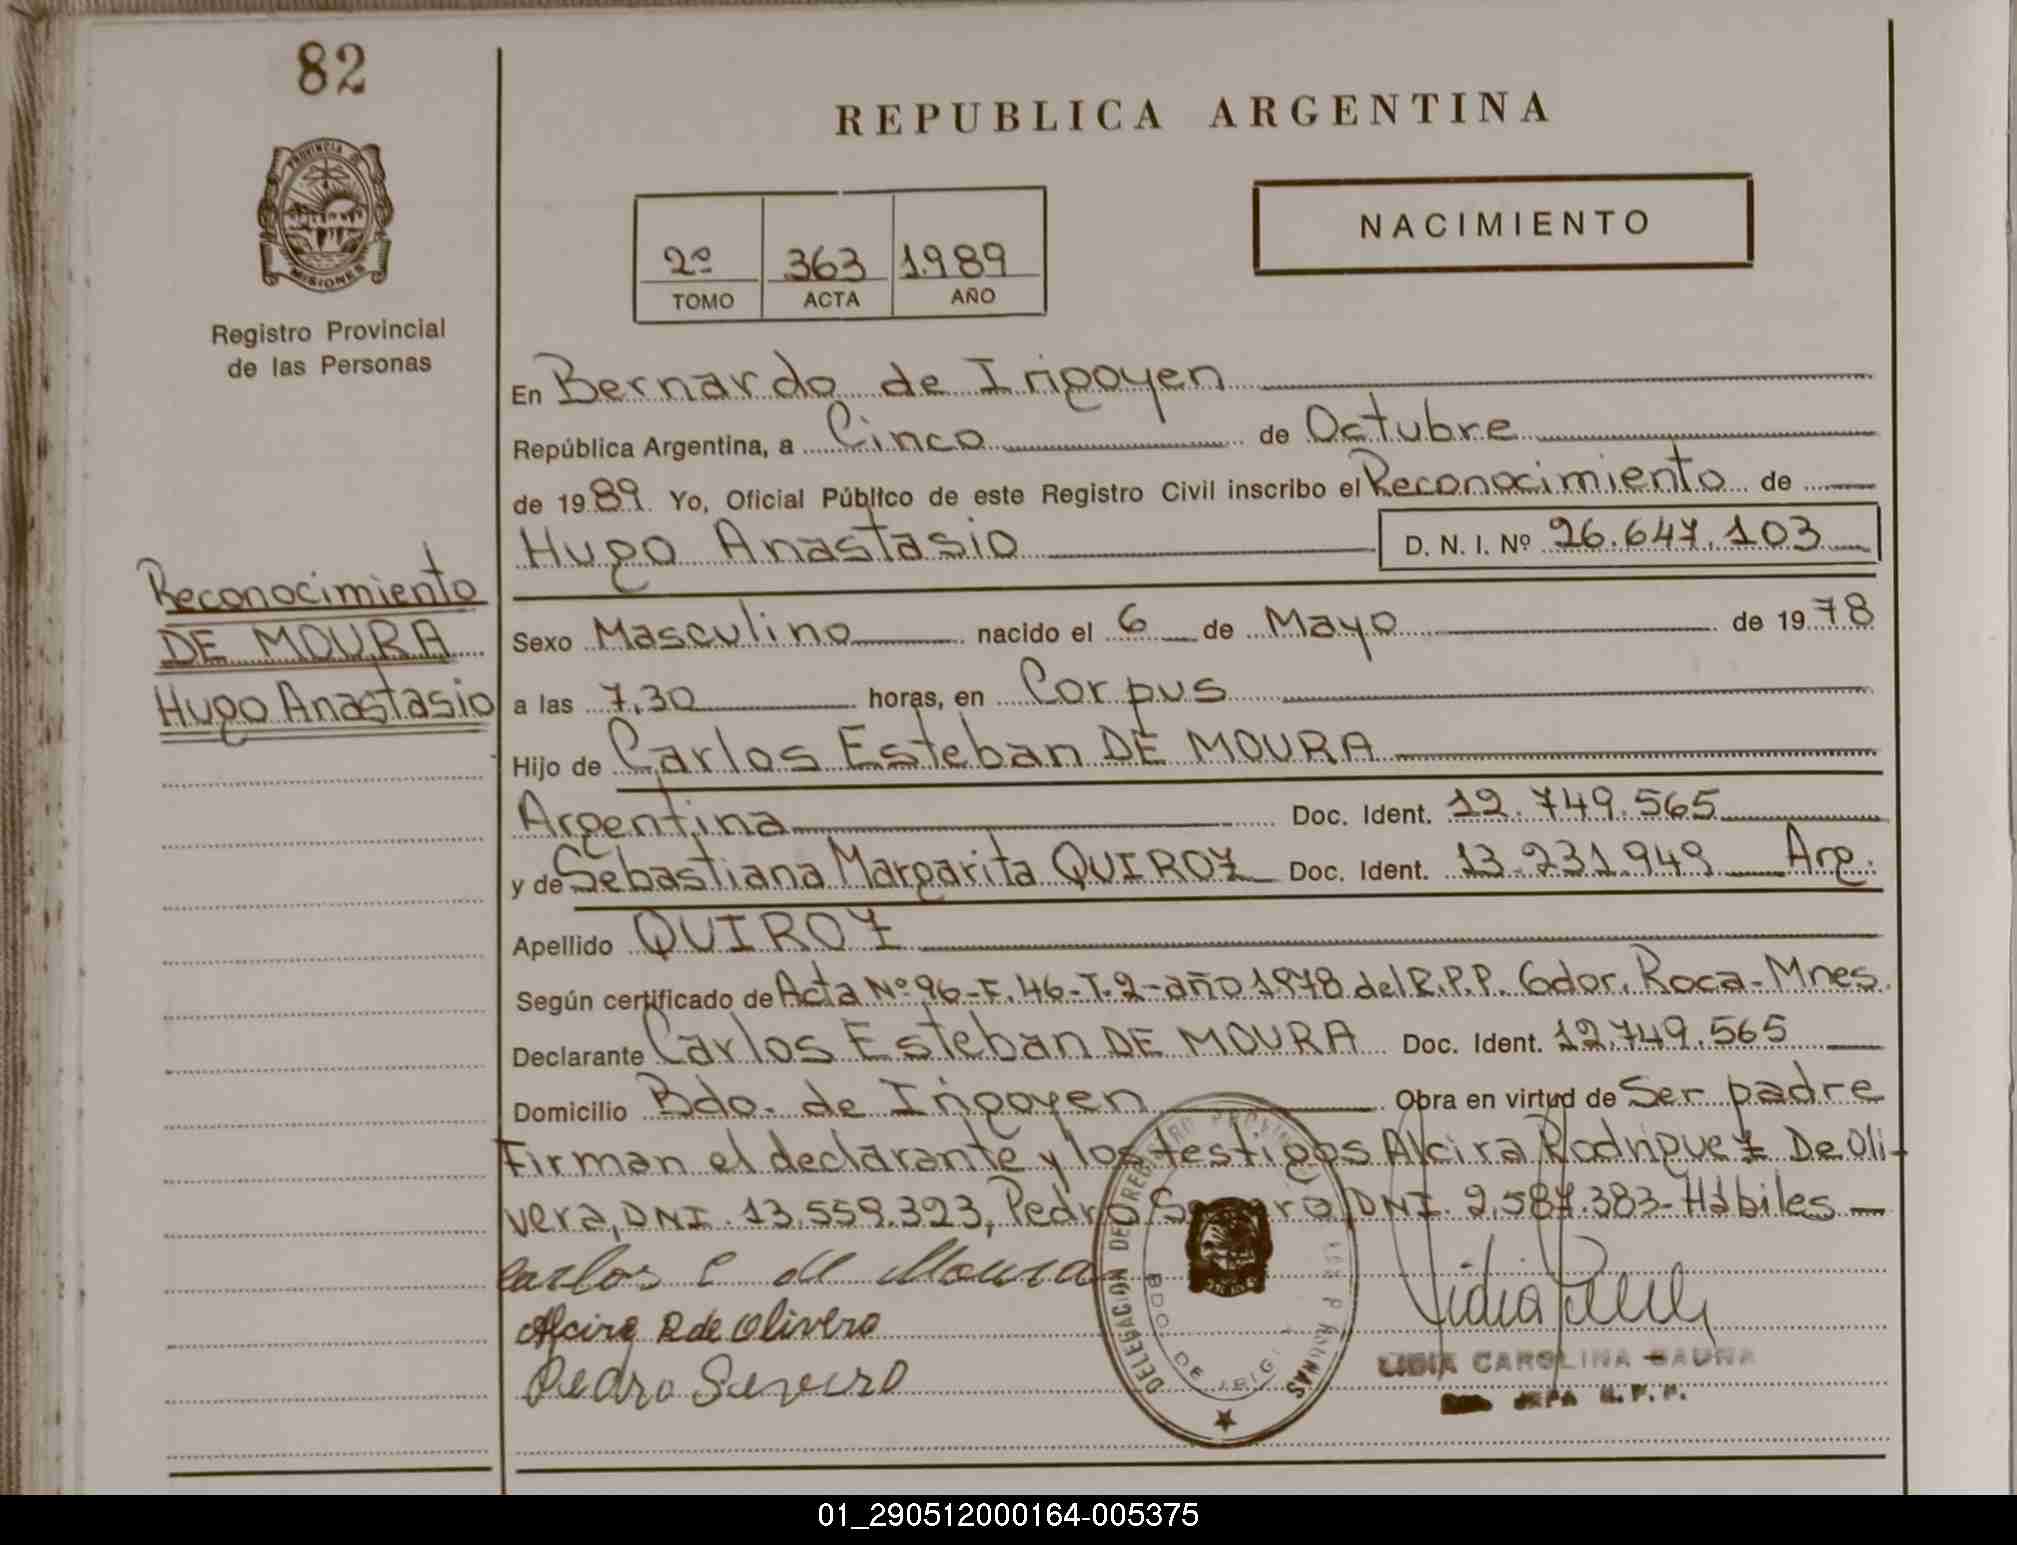 82
REPUBLICA ARGENTINA
PROVINCIA DE
MISIONES
Registro Provincial
de las Personas
NACIMIENTO
2º 363 1989
TOMO ACTA AÑO
En Bernardo de Irigoyen
República Argentina, a Cinco de Octubre
de 1989. Yo, Oficial Público de este Registro Civil inscribo el Reconocimiento de
Hugo Anastasio D. N. I. Nº 26.647.103
Reconocimiento
DE MOURA
Hugo Anastasio
Sexo Masculino nacido el 6 de Mayo de 1978
a las 7,30 horas, en Corpus
Hijo de Carlos Esteban DE MOURA
Argentina Doc. Ident. 12.749.565
y de Sebastiana Margarita QUIROZ Doc. Ident. 13.231.949 Arg.
Apellido QUIROZ
Según certificado de Acta Nº 96-F.46-T.2-año 1978 del R.P.P. Gdor. Roca-Mnes.
Declarante Carlos Esteban DE MOURA Doc. Ident. 12.749.565
Domicilio Bdo. de Irigoyen Obra en virtud de Ser padre
Firman el declarante y los testigos Alcira Rodriguez De Oli-
vera, DNI. 13.559.323, Pedro DNI. 2.587.383-Hábiles
Carlos E de Moura
Alcira R de Olivera
Pedro Severo
DELEGACION DEL REGISTRO PROVINCIAL
BDO. DE IRIG
Lidia
LIDIA CAROLINA
JEFA R.P.P.
01_290512000164-005375